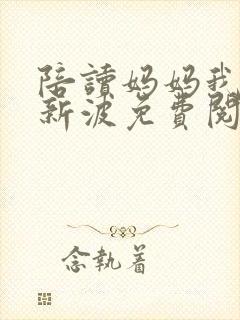 陪讀妈妈我
新波免費閱
念執着